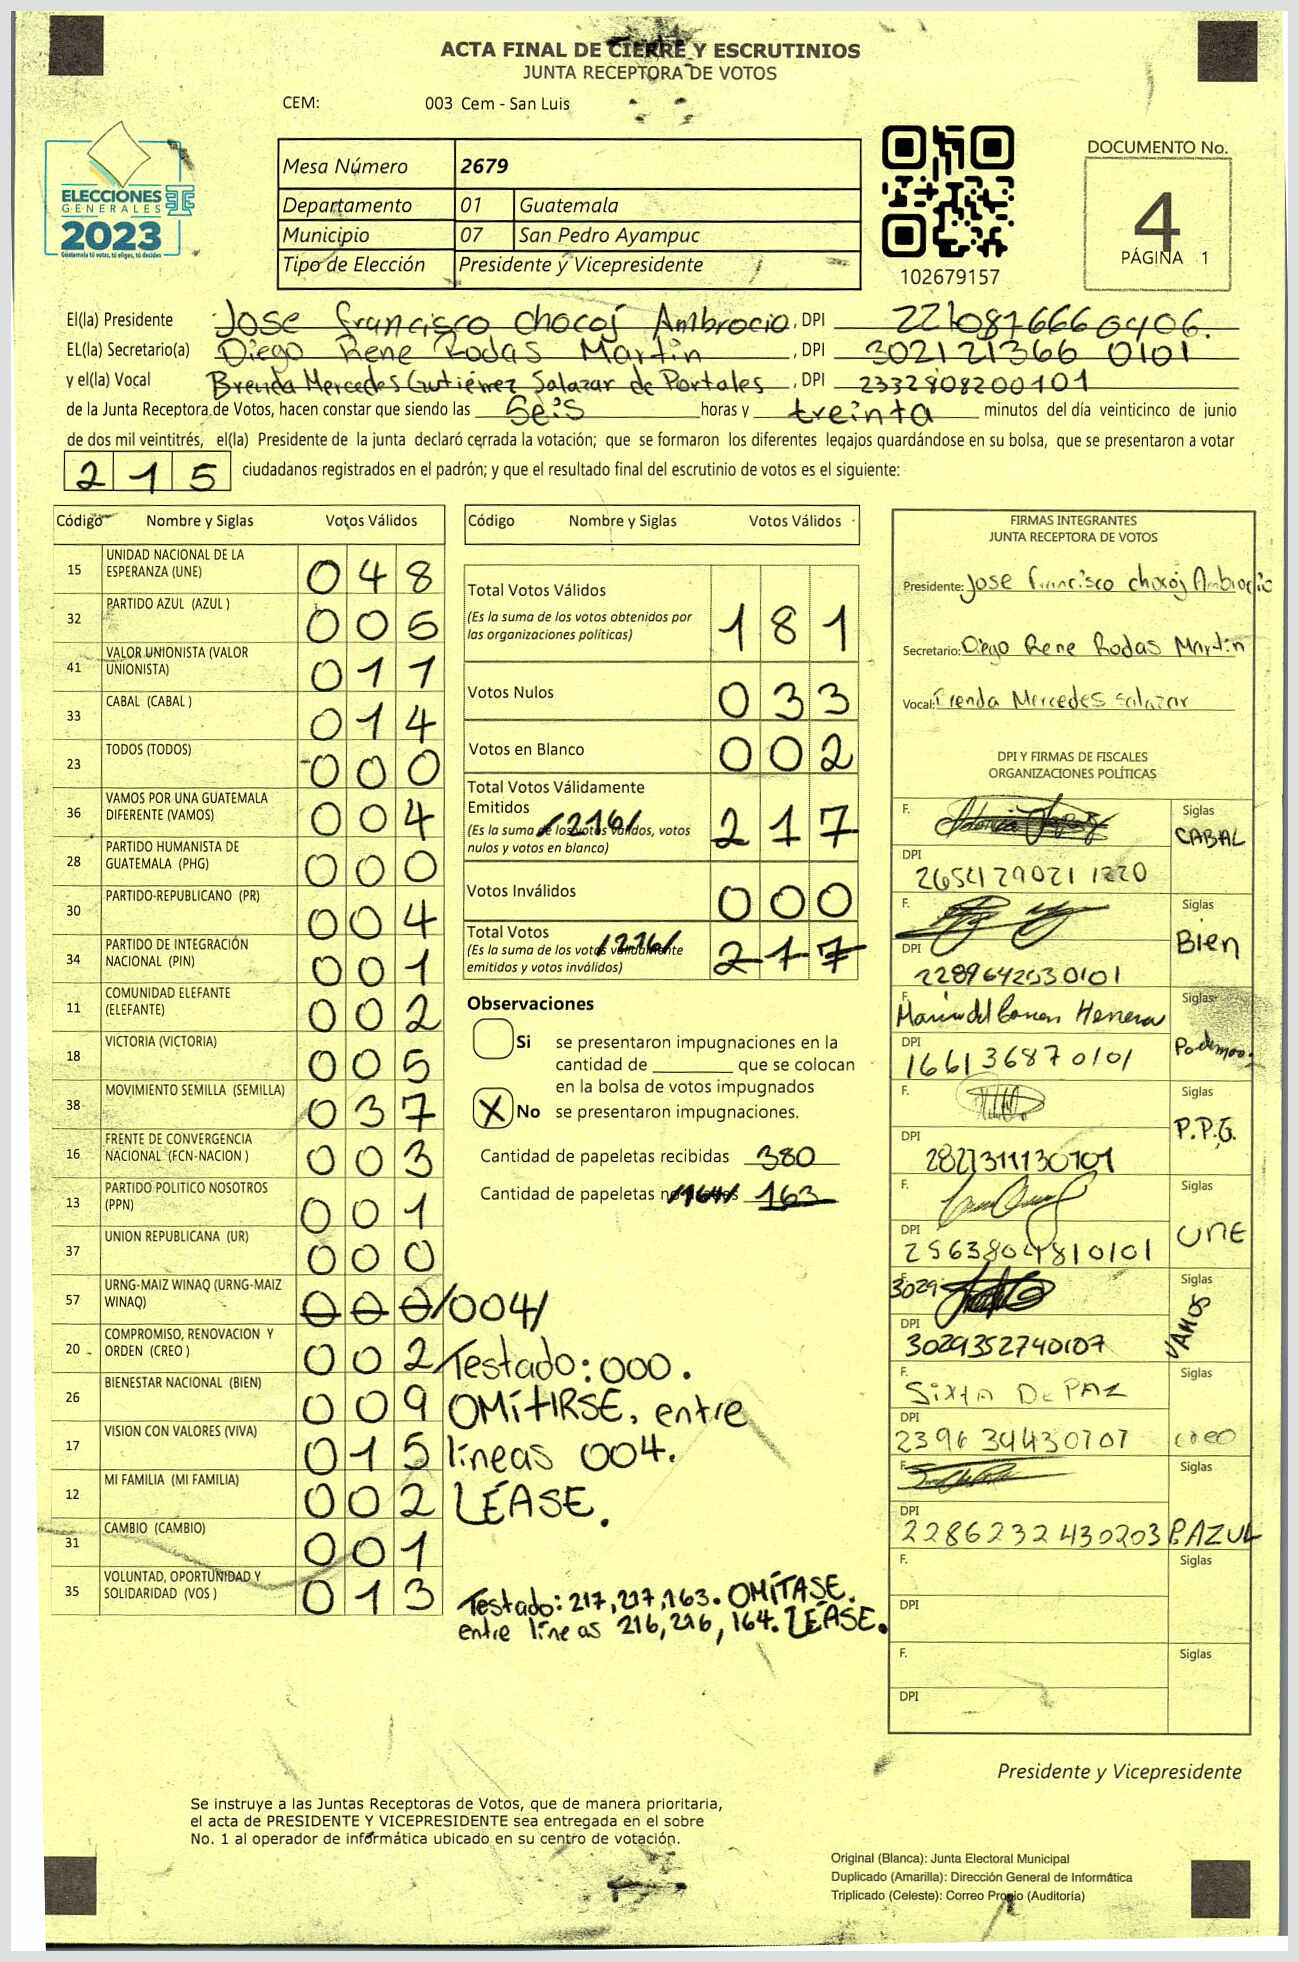 ACTA FINAL DE CIERRE Y ESCRUTINIOS
JUNTA RECEPTORA DE VOTOS
CEM: 003 Cem - San Luis
ELECCIONES
GENERALES
2023
Guatemala tú votas, tú eliges, tú decides
Mesa Número 2679
Departamento 01 Guatemala
Municipio 07 San Pedro Ayampuc
Tipo de Elección Presidente y Vicepresidente
102679157
DOCUMENTO No.
4
PÁGINA 1
El(la) Presidente Jose francisco chocoj Ambrocio, DPI
EL(la) Secretario(a) Diego Rene Rodas Martin, DPI 302121366 0101
y el(la) Vocal Brenda Mercedes Gutiérrez Salazar de Portales, DPI 2332808200101
de la Junta Receptora de Votos, hacen constar que siendo las Seis horas y treinta minutos del día veinticinco de junio
de dos mil veintitrés, el(la) Presidente de la junta declaró cerrada la votación; que se formaron los diferentes legajos quardándose en su bolsa, que se presentaron a votar
215 ciudadanos registrados en el padrón; y que el resultado final del escrutinio de votos es el siguiente:
Código Nombre y Siglas Votos Válidos
15 UNIDAD NACIONAL DE LA ESPERANZA (UNE) 048
32 PARTIDO AZUL (AZUL ) 006
41 VALOR UNIONISTA (VALOR UNIONISTA) 011
33 CABAL (CABAL ) 014
23 TODOS (TODOS) 000
36 VAMOS POR UNA GUATEMALA DIFERENTE (VAMOS) 004
28 PARTIDO HUMANISTA DE GUATEMALA (PHG) 000
30 PARTIDO-REPUBLICANO (PR) 004
34 PARTIDO DE INTEGRACIÓN NACIONAL (PIN) 001
11 COMUNIDAD ELEFANTE (ELEFANTE) 002
18 VICTORIA (VICTORIA) 005
38 MOVIMIENTO SEMILLA (SEMILLA) 037
16 FRENTE DE CONVERGENCIA NACIONAL (FCN-NACION ) 003
13 PARTIDO POLITICO NOSOTROS (PPN) 001
37 UNION REPUBLICANA (UR) 000
57 URNG-MAIZ WINAQ (URNG-MAIZ WINAQ) 000 /004/
20 COMPROMISO, RENOVACION Y ORDEN (CREO ) 002
26 BIENESTAR NACIONAL (BIEN) 009
17 VISION CON VALORES (VIVA) 015
12 MI FAMILIA (MI FAMILIA) 002
31 CAMBIO (CAMBIO) 001
35 VOLUNTAD, OPORTUNIDAD Y SOLIDARIDAD (VOS ) 013
Testado: 000.
OMITIRSE, entre
líneas 004.
LÉASE.
Código Nombre y Siglas Votos Válidos
Total Votos Válidos 181
(Es la suma de los votos obtenidos por
las organizaciones políticas)
Votos Nulos 033
Votos en Blanco 002
Total Votos Válidamente
Emitidos /216/ 217
(Es la suma de los votos validos, votos
nulos y votos en blanco)
Votos Inválidos 000
Total Votos /216/ 217
(Es la suma de los votos válidamente
emitidos y votos inválidos)
Observaciones
Si se presentaron impugnaciones en la
cantidad de ________ que se colocan
en la bolsa de votos impugnados
X No se presentaron impugnaciones.
Cantidad de papeletas recibidas 380
Cantidad de papeletas /164/ 163
Testado: 217, 217, 163. OMÍTASE.
entre líneas 216, 216, 164. LÉASE.
FIRMAS INTEGRANTES
JUNTA RECEPTORA DE VOTOS
Presidente: Jose francisco chocoj Ambrocio
Secretario: Diego Rene Rodas Martin
Vocal: Brenda Mercedes Salazar
DPI Y FIRMAS DE FISCALES
ORGANIZACIONES POLÍTICAS
F. Siglas CABAL
DPI 2654 29021 1220
F. Siglas Bien
DPI 2289642530101
F. Maria del Carmen Herrera Siglas Podemos
DPI 16613687 0101
F. Siglas P.P.G.
DPI
F. Siglas UNE
DPI 2563804810101
F. 3029 Siglas VAMOS
DPI 3029352740107
F. Sixta De PAZ Siglas creo
DPI 2396 34430707
F. Siglas P.AZUL
DPI 2286232430203
F. Siglas
DPI
F. Siglas
DPI
Presidente y Vicepresidente
Se instruye a las Juntas Receptoras de Votos, que de manera prioritaria,
el acta de PRESIDENTE Y VICEPRESIDENTE sea entregada en el sobre
No. 1 al operador de informática ubicado en su centro de votación.
Original (Blanca): Junta Electoral Municipal
Duplicado (Amarilla): Dirección General de Informática
Triplicado (Celeste): Correo Propio (Auditoría)